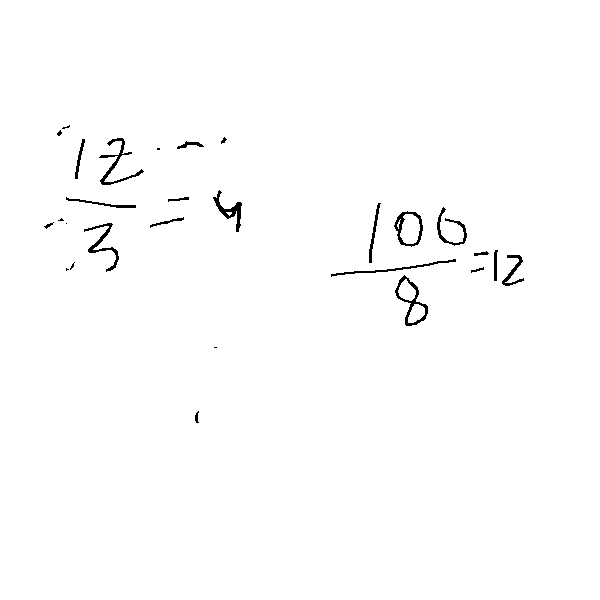 12/3 = 4
100/8 = 12